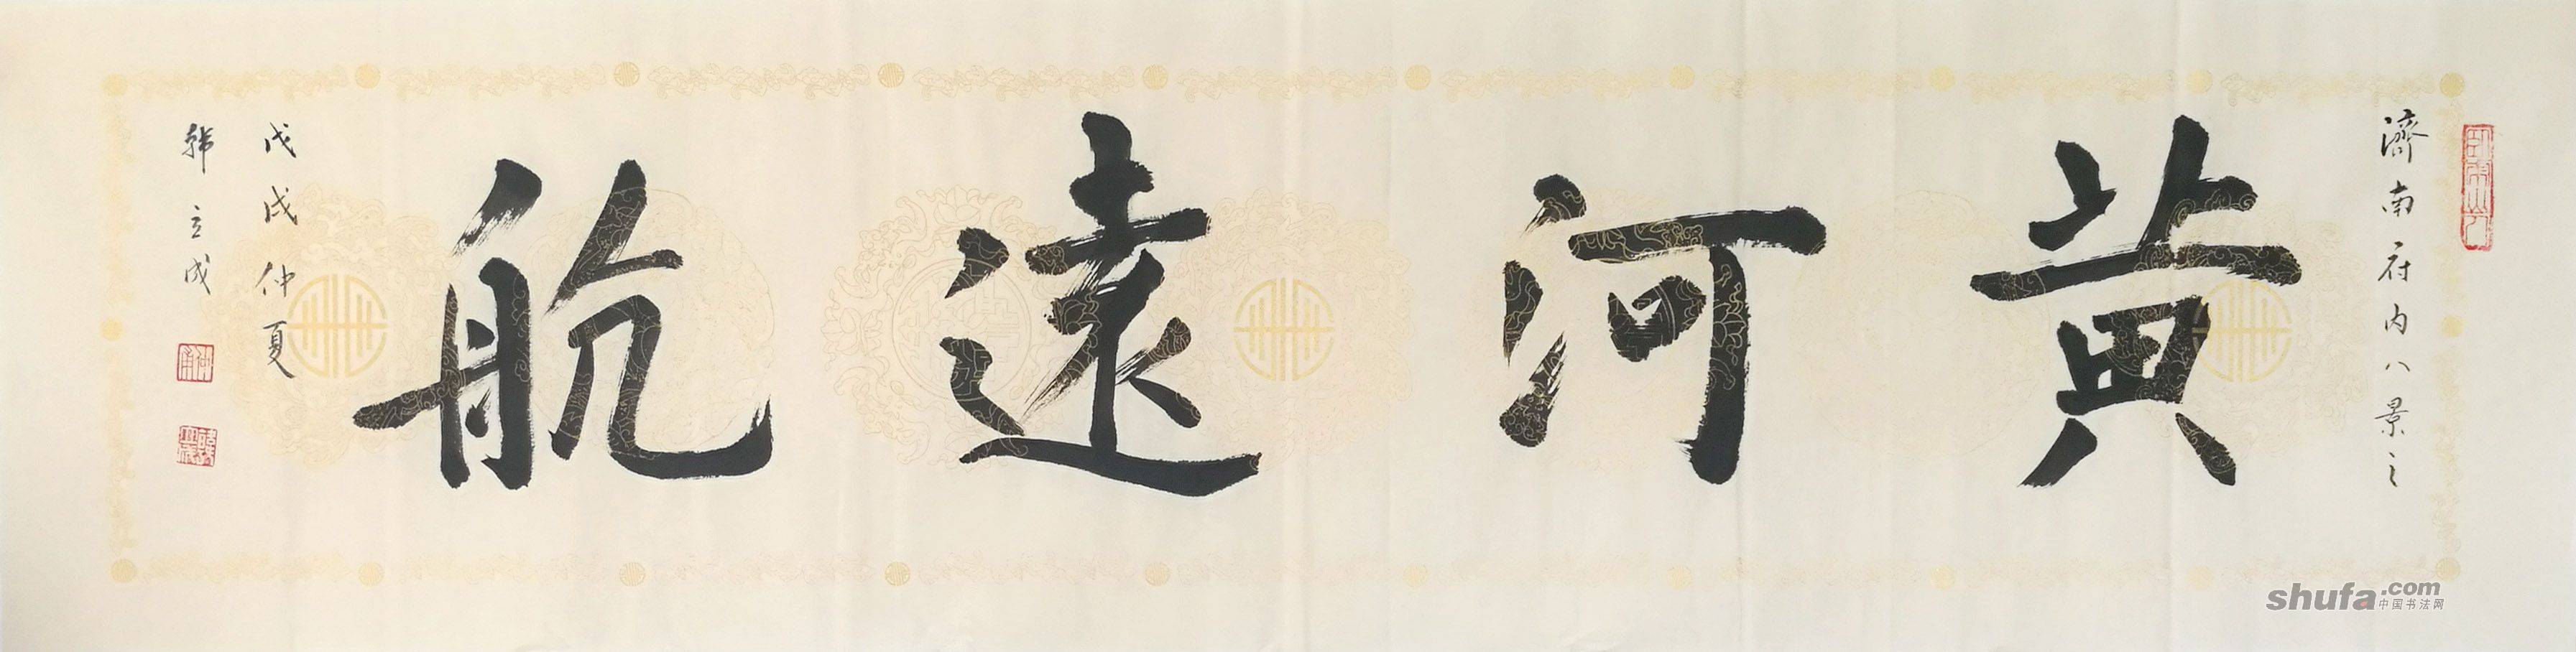 濟南府内八景之
黄河遠航
戊戌仲夏
韩立成
shufa.com
中国书法网